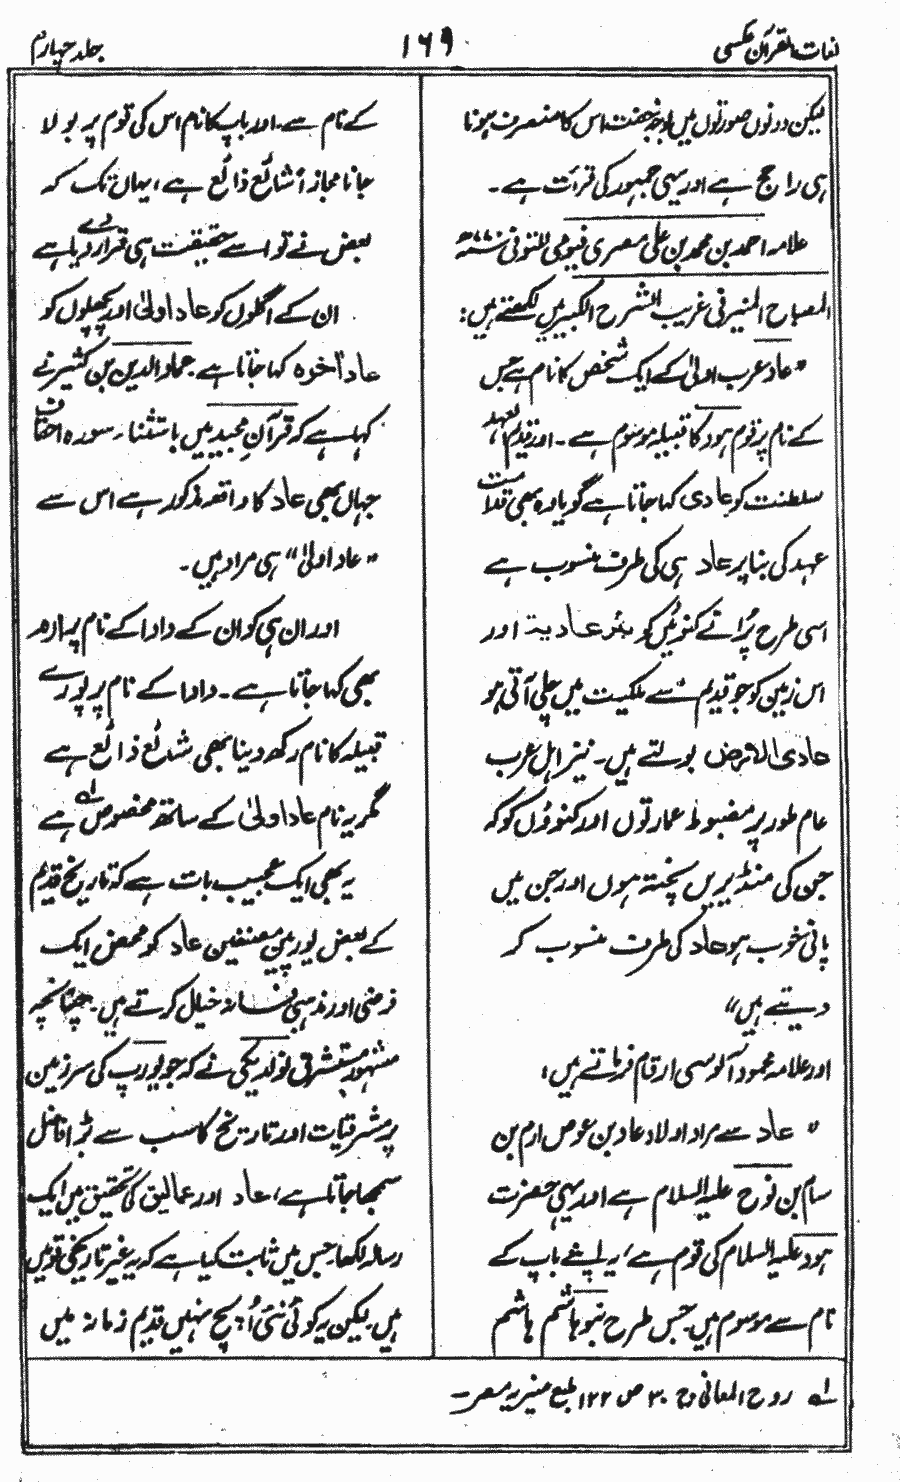 لغات القرآن عکسی
۱۶۹
جلد چہارم
لیکن دونوں صورتوں میں بوجہ خفت اس کا منصرف ہونا
ہی راجح ہے اور یہی جمہور کی قرأت ہے۔
علامہ احمد بن محمد بن علی مصری فیومی المتوفی ۷۷۰ھ
المصباح المنیر فی غریب الشرح الکبیر میں لکھتے ہیں:
"عاد عرب اولیٰ کے ایک شخص کا نام ہے جس
کے نام پر قوم ہود کا قبیلہ موسوم ہے۔ اور قدیم العہد
سلطنت کو عادی کہا جاتا ہے گویا وہ بھی قدامت
عہد کی بنا پر عاد ہی کی طرف منسوب ہے
اسی طرح پرانے کنوئیں کو بئر عادیۃ اور
اس زمین کو جو قدیم سے ملکیت میں چلی آتی ہو
عادی الارض بولتے ہیں۔ نیز اہل عرب
عام طور پر مضبوط عمارتوں اور کنوؤں کو کہ
جن کی منڈیریں پختہ ہوں اور جن میں
پانی خوب ہو عاد کی طرف منسوب کر
دیتے ہیں"
اور علامہ محمود آلوسی ارقام فرماتے ہیں:
"عاد سے مراد اولاد عاد بن عوص ارم بن
سام بن نوح علیہ السلام ہے اور یہی حضرت
ہود علیہ السلام کی قوم ہے، یہ اپنے باپ کے
نام سے موسوم ہیں جس طرح بنو ہاشم ہاشم
کے نام سے۔ اور باپ کا نام اس کی قوم پر بولا
جانا مجاز اً شائع ذائع ہے، یہاں تک کہ
بعض نے تو اسے حقیقت ہی قرار دے دیا ہے
ان کے اگلوں کو عاد اولیٰ اور پچھلوں کو
عاد آخرہ کہا جاتا ہے عماد الدین بن کثیر نے
کہا ہے کہ قرآن مجید میں باستثناء سورہ احقاف
جہاں بھی عاد کا واقعہ مذکور ہے اس سے
"عاد اولیٰ" ہی مراد ہیں۔
اور ان ہی کو ان کے دادا کے نام پر ارم
بھی کہا جاتا ہے۔ دادا کے نام پر پورے
قبیلہ کا نام رکھ دینا بھی شائع ذائع ہے
مگر یہ نام عاد اولیٰ کے ساتھ مخصوص ہے لہ
یہ بھی ایک عجیب بات ہے کہ تاریخ قدیم
کے بعض یورپین مصنفین عاد کو محض ایک
فرضی اور مذہبی فسانہ خیال کرتے ہیں۔ چنانچہ
مشہور مستشرق نولدیکی نے کہ جو یورپ کی سرزمین
پر مشرقیات اور تاریخ کا سب سے بڑا فاضل
سمجھا جاتا ہے، عاد اور عمالیق کی تحقیق میں ایک
رسالہ لکھا جس میں ثابت کیا ہے کہ یہ غیر تاریخی قومیں
ہیں لیکن یہ کوئی نئی اُپج نہیں قدیم زمانہ میں
لہ روح المعانی ج ۳۰ ص ۱۲۲ طبع منیریہ مصر۔